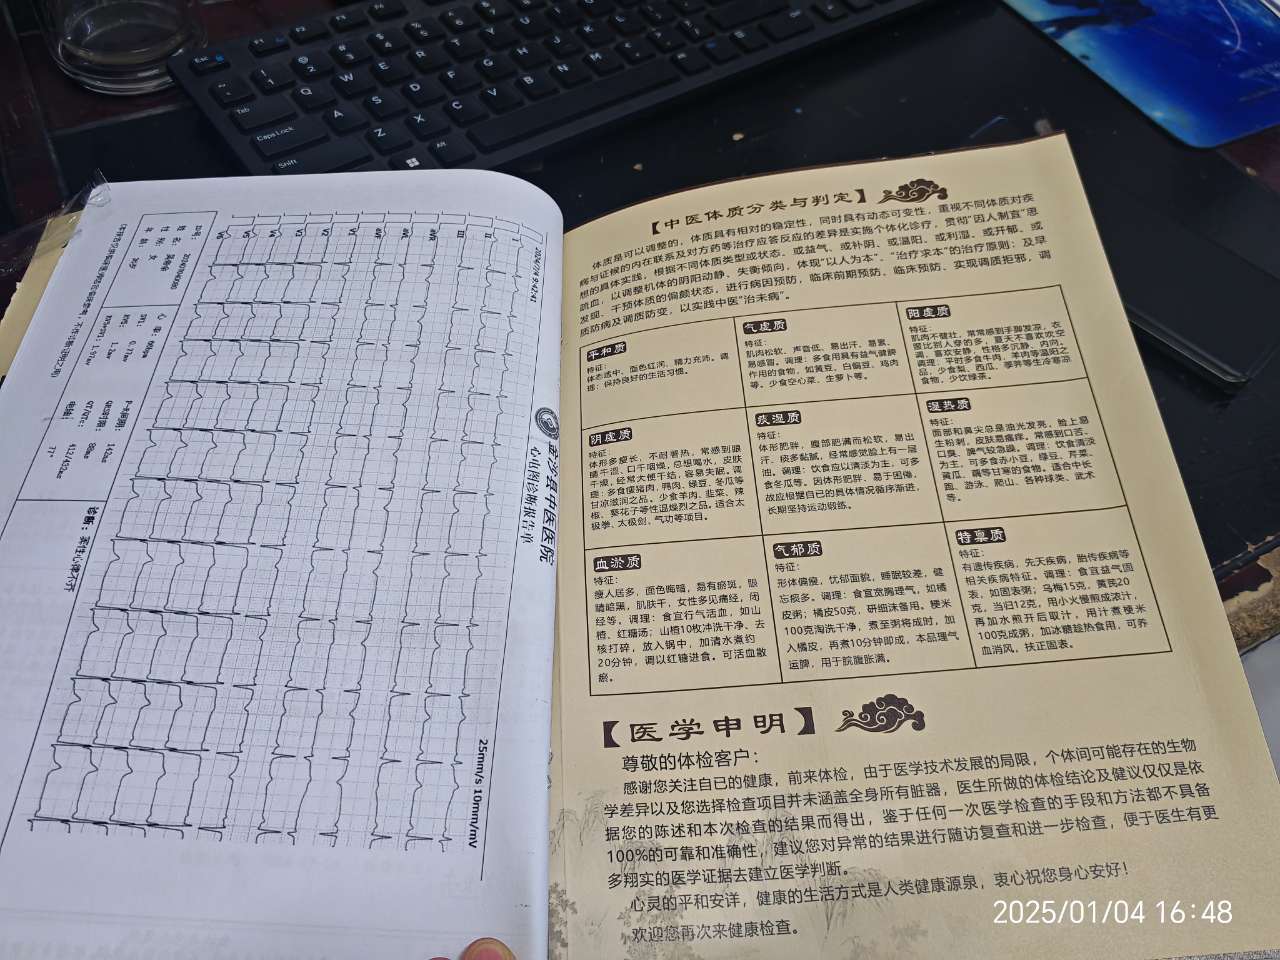 2024/7/4 9:42:41
金沙县中医医院
心电图诊断报告单
I
II
III
aVR
aVL
aVF
V1
V2
V3
V4
V5
V6
25mm/s 10mm/mV
ID号:
姓 名:
性 别: 女
年 龄:
心 率: 66bpm
P-R间期: 142ms
QRS时限: 88ms
QT/QTc: 412/432ms
电轴: 77°
诊断: 窦性心律不齐
【中医体质分类与判定】
体质是可以调整的，体质具有相对的稳定性，同时具有动态可变性，重视不同体质对疾
病与证候的内在联系及对方药等治疗应答反应的差异是实施个体化诊疗，贯彻"因人制宜"思
想的具体实践，根据不同体质类型或状态，或益气、或补阴、或温阳、或利湿、或开郁、或
疏血，以调整机体的阴阳动静、失衡倾向，体现"以人为本"、"治疗求本"的治疗原则；及早
发现、干预体质的偏颇状态，进行病因预防，临床前期预防、临床预防、实现调质拒邪，调
质防病及调质防变，以实践中医"治未病"。
平和质
特征：
体态适中、面色红润、精力充沛。调
摄：保持良好的生活习惯。
气虚质
特征：
肌肉松软、声音低、易出汗、易累、
易感冒。调理：多食用具有益气健脾
作用的食物，如黄豆、白扁豆、鸡肉
等。少食空心菜、生萝卜等。
阳虚质
特征：
肌肉不健壮，常常感到手脚发凉，衣
服比别人穿的多，夏天不喜欢吹空
调，喜欢安静，性格多沉静、内向。
调理：平时多食牛肉、羊肉等温阳之
品，少食梨、西瓜、荸荠等生冷寒凉
食物，少饮绿茶。
阴虚质
特征：
体形多瘦长，不耐暑热，常感到眼
睛干涩、口干咽燥，总想喝水，皮肤
干燥，经常大便干结，容易失眠。调
理：多食瘦猪肉、鸭肉、绿豆、冬瓜等
甘凉滋润之品。少食羊肉、韭菜、辣
椒、葵花子等性温燥烈之品。适合太
极拳、太极剑、气功等项目。
痰湿质
特征：
体形肥胖，腹部肥满而松软，易出
汗，痰多黏腻，经常感觉脸上有一层
油。调理：饮食应以清淡为主，可多
食冬瓜等。因体形肥胖，易于困倦，
故应根据自己的具体情况循序渐进，
长期坚持运动锻炼。
湿热质
特征：
面部和鼻尖总是油光发亮，脸上易
生粉刺，皮肤易瘙痒。常感到口苦、
口臭，脾气较急躁。调理：饮食清淡
为主，可多食赤小豆、绿豆、芹菜、
黄瓜、藕等甘寒的食物。适合中长
跑、游泳、爬山、各种球类、武术
等。
血淤质
特征：
瘦人居多，面色晦暗，易有瘀斑，眼
睛暗黑，肌肤干，女性多见痛经，闭
经等，调理：食宜行气活血，如山
楂、红糖汤：山楂10枚冲洗干净、去
核打碎，放入锅中，加清水煮约
20分钟，调以红糖进食。可活血散
瘀。
气郁质
特征：
形体偏瘦，忧郁面貌，睡眠较差，健
忘痰多。调理：食宜宽胸理气，如橘
皮粥；橘皮50克，研细沫备用，粳米
100克淘洗干净，煮至粥将成时，加
入橘皮，再煮10分钟即成，本品理气
运脾，用于脘腹胀满。
特禀质
特征：
有遗传疾病，先天疾病，胎传疾病等
相关疾病特征。调理：食宜益气固
表，如固表粥；乌梅15克，黄芪20
克，当归12克，用小火慢煎成浓汁，
再加水煎开后取汁，用汁煮粳米
100克成粥，加冰糖趁热食用，可养
血消风，扶正固表。
【医学申明】
尊敬的体检客户：
感谢您关注自已的健康，前来体检，由于医学技术发展的局限，个体间可能存在的生物
学差异以及您选择检查项目并未涵盖全身所有脏器，医生所做的体检结论及健议仅仅是依
据您的陈述和本次检查的结果而得出，鉴于任何一次医学检查的手段和方法都不具备
100%的可靠和准确性，建议您对异常的结果进行随访复查和进一步检查，便于医生有更
多翔实的医学证据去建立医学判断。
心灵的平和安详，健康的生活方式是人类健康源泉，衷心祝您身心安好！
欢迎您再次来健康检查。
2025/01/04 16:48
Esc
Tab
Caps Lock
Shift
Alt